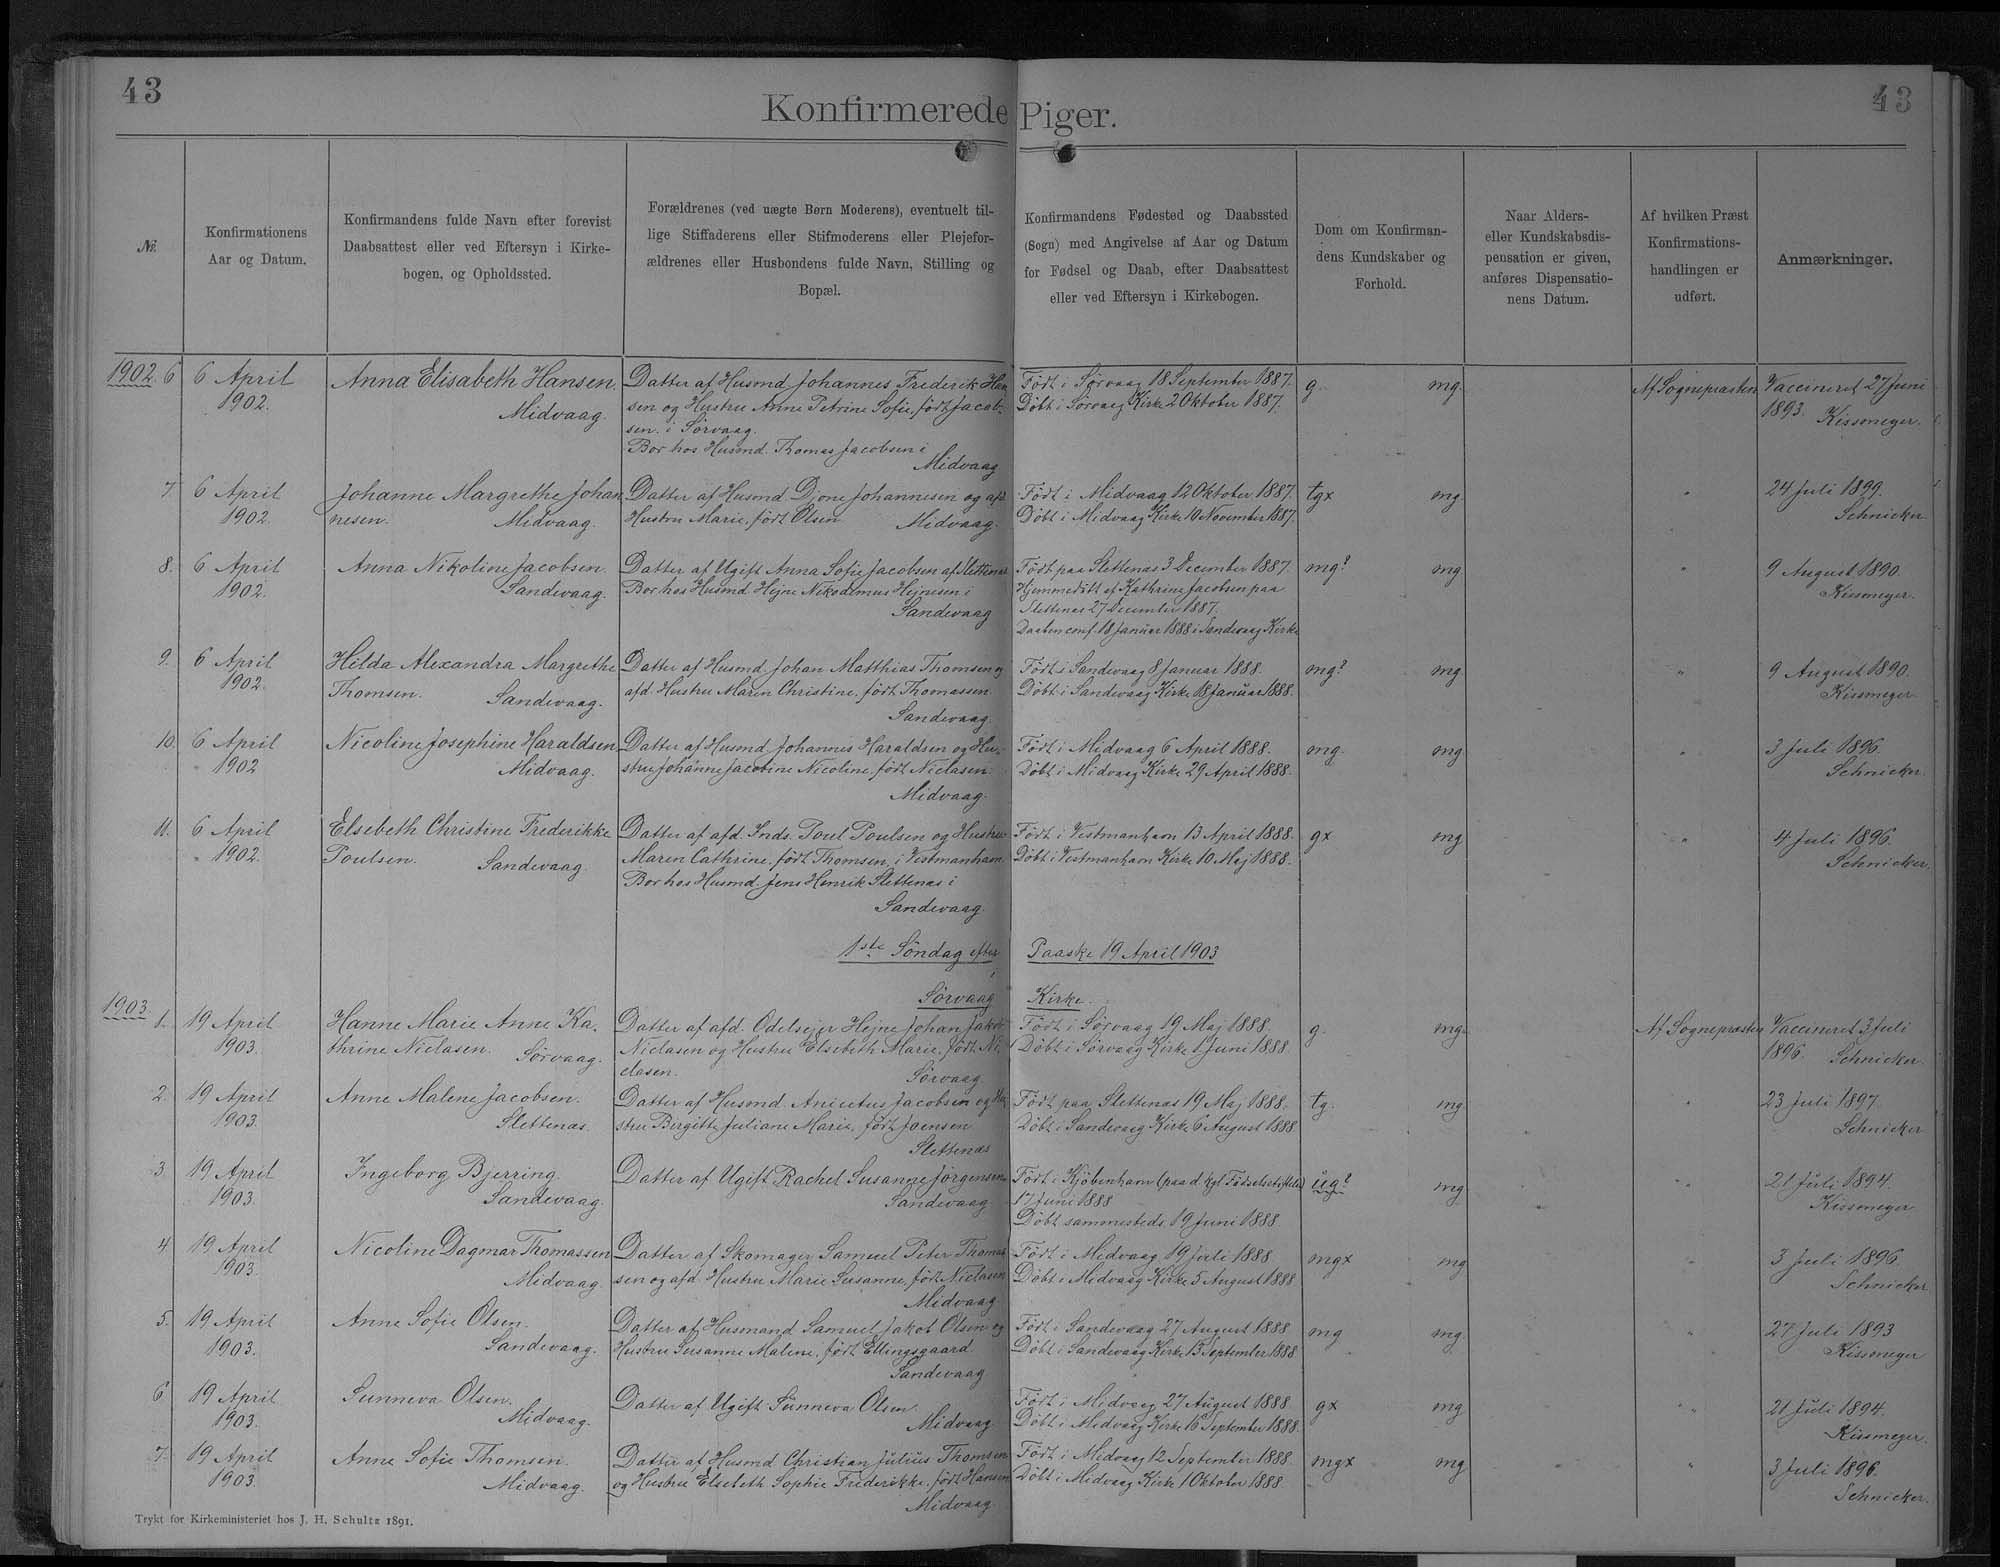 43
Konfirmerede Piger.
43
Nr.
Konfirmationens
Aar og Datum.
Konfirmandens fulde Navn efter forevist
Daabsattest eller ved Eftersyn i Kirke-
bogen, og Opholdssted.
Forældrenes (ved uægte Børn Moderens), eventuelt til-
lige Stiffaderens eller Stifmoderens eller Plejefor-
ældrenes eller Husbondens fulde Navn, Stilling og
Bopæl.
Konfirmandens Fødested og Daabssted
(Sogn) med Angivelse af Aar og Datum
for Fødsel og Daab, efter Daabsattest
eller ved Eftersyn i Kirkebogen.
Dom om Konfirman-
dens Kundskaber og
Forhold.
Naar Alders-
eller Kundskabsdis-
pensation er given,
anføres Dispensatio-
nens Datum.
Af hvilken Præst
Konfirmations-
handlingen er
udført.
Anmærkninger.
1902. 6
6 April
1902.
Anna Elisabeth Hansen.
Midvaag.
Datter af Husmd. Johannes Frederik Han
sen og Hustru Anne Petrine Sofie, født Jacob-
sen. i Sörvaag.
Bor hos Husmd. Thomas Jacobsen i
Midvaag
Födt i Sörvaag 18 September 1887.
Döbt i Sörvaag Kirke 2 Oktober 1887.
g. mg.
Af Sognepræsten
Vaccineret 27 Juni
1893. Kissmeyer.
7. 6 April
1902.
Johanne Margrethe Johan
nesen. Midvaag.
Datter af Husmd. Djone Johannesen og afd.
Hustru Marie, født Olsen. Midvaag.
Födt i Midvaag 12 Oktober 1887.
Döbt i Midvaag Kirke 10 November 1887.
tgx mg.
"
24 Juli 1899.
Schnicker.
8. 6 April
1902.
Anna Nikoline Jacobsen.
Sandevaag.
Datter af Ugift Anna Sofie Jacobsen af Slettenas
Bor hos Husmd. Hejne Nikodemus Hejnesen i
Sandevaag
Födt paa Slettenas 3 December 1887.
Hjemmedöbt af Kathrine Jacobsen paa
Slettenas 27 December 1887.
Daaben conf. 18 Januar 1888 i Sandevaag Kirke
mg? mg.
"
9 August 1890.
Kissmeyer.
9. 6 April
1902.
Hilda Alexandra Margrethe
Thomsen. Sandevaag.
Datter af Husmd. Johan Matthias Thomsen og
afd. Hustru Maren Christine, født Thomassen.
Sandevaag.
Födt i Sandevaag 8 Januar 1888.
Döbt i Sandevaag Kirke 18 Januar 1888.
mg? mg.
"
9 August 1890.
Kissmeyer.
10. 6 April
1902
Nicoline Josephine Haraldsen
Midvaag.
Datter af Husmd. Johannes Haraldsen og Hu-
stru Johanne Jacobine Nicoline, født Niclasen.
Midvaag.
Födt i Midvaag 6 April 1888.
Döbt i Midvaag Kirke 29 April 1888.
mg. mg
"
3 Juli 1896.
Schnicker.
11. 6 April
1902.
Elsebeth Christine Frederikke
Poulsen. Sandevaag.
Datter af afd. Inds. Poul Poulsen og Hustru
Maren Cathrine, født Thomsen, i Vestmanhavn
Bor hos Husmd. Jens Henrik Slettenas i
Sandevaag.
Födt i Vestmanhavn 13 April 1888.
Döbt i Vestmanhavn Kirke 10 Maj 1888.
gx mg
"
4 Juli 1896.
Schnicker.
1ste Söndag efter Paaske 19 April 1903
i
Sörvaag Kirke.
1903.
1. 19 April
1903.
Hanne Marie Anne Ka-
thrine Niclasen. Sörvaag.
Datter af afd. Odelsejer Hejne Johan Jakob
Niclasen og Hustru Elsebeth Marie, født Ni-
clasen. Sörvaag
Födt i Sörvaag 19 Maj 1888.
Döbt i Sörvaag Kirke 1 Juni 1888
g. mg.
Af Sognepræsten
Vaccineret 3 Juli
1896. Schnicker.
2. 19 April
1903.
Anne Malene Jacobsen.
Slettenas.
Datter af Husmd. Anicetus Jacobsen og Hu
stru Birgitte Juliane Marie, født Joensen
Slettenas
Födt paa Slettenas 19 Maj 1888.
Döbt i Sandevaag Kirke 6 August 1888
tg. mg
"
23 Juli 1897.
Schnicker
3. 19 April
1903.
Ingeborg Bjerring.
Sandevaag.
Datter af Ugift Rachel Susanne Jörgensen
Sandevaag
Födt i Kjöbenhavn (paa d. kgl. Födselsstiftelse)
17 Juni 1888
Döbt sammesteds 19 Juni 1888
ug? mg
"
21 Juli 1894.
Kissmeyer
4. 19 April
1903.
Nicoline Dagmar Thomassen
Midvaag.
Datter af Skomager Samuel Peter Thomas
sen og afd. Hustru Marie Susanne, født Niclasen
Midvaag
Födt i Midvaag 19 Juli 1888
Döbt i Midvaag Kirke 5 August 1888
mgx mg
"
3 Juli 1896.
Schnicker
5. 19 April
1903.
Anne Sofie Olsen.
Sandevaag.
Datter af Husmand Samuel Jakob Olsen og
Hustru Susanne Malene, født Ellingsgaard
Sandevaag
Födt i Sandevaag 27 August 1888
Döbt i Sandevaag Kirke 13 September 1888
mg mg
"
27 Juli 1893
Kissmeyer
6. 19 April
1903.
Sunneva Olsen.
Midvaag.
Datter af Ugift Sunneva Olsen.
Midvaag
Födt i Midvaag 27 August 1888
Döbt i Midvaag Kirke 16 September 1888.
gx mg
"
21 Juli 1894.
Kissmeyer.
7. 19 April
1903.
Anne Sofie Thomsen.
Midvaag.
Datter af Husmd Christian Julius Thomsen
og Hustru Elsebeth Sophie Frederikke, født Hansen
Midvaag
Födt i Midvaag 12 September 1888
Döbt i Midvaag Kirke 1 Oktober 1888
mgx mg
"
3 Juli 1896.
Schnicker.
Trykt for Kirkeministeriet hos J. H. Schultz 1891.